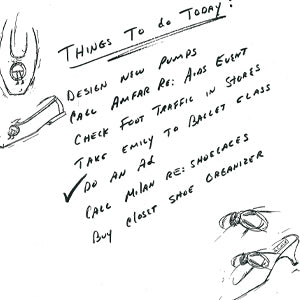 THINGS TO do TODAY:
DESIGN NEW PUMPS
CALL AMFAR RE: AIDS EVENT
CHECK FOOT TRAFFIC IN STORES
TAKE EMILY TO BALLET CLASS
DO AN AD
CALL MILAN RE: SHOELACES
BUY CLOSET SHOE ORGANIZER